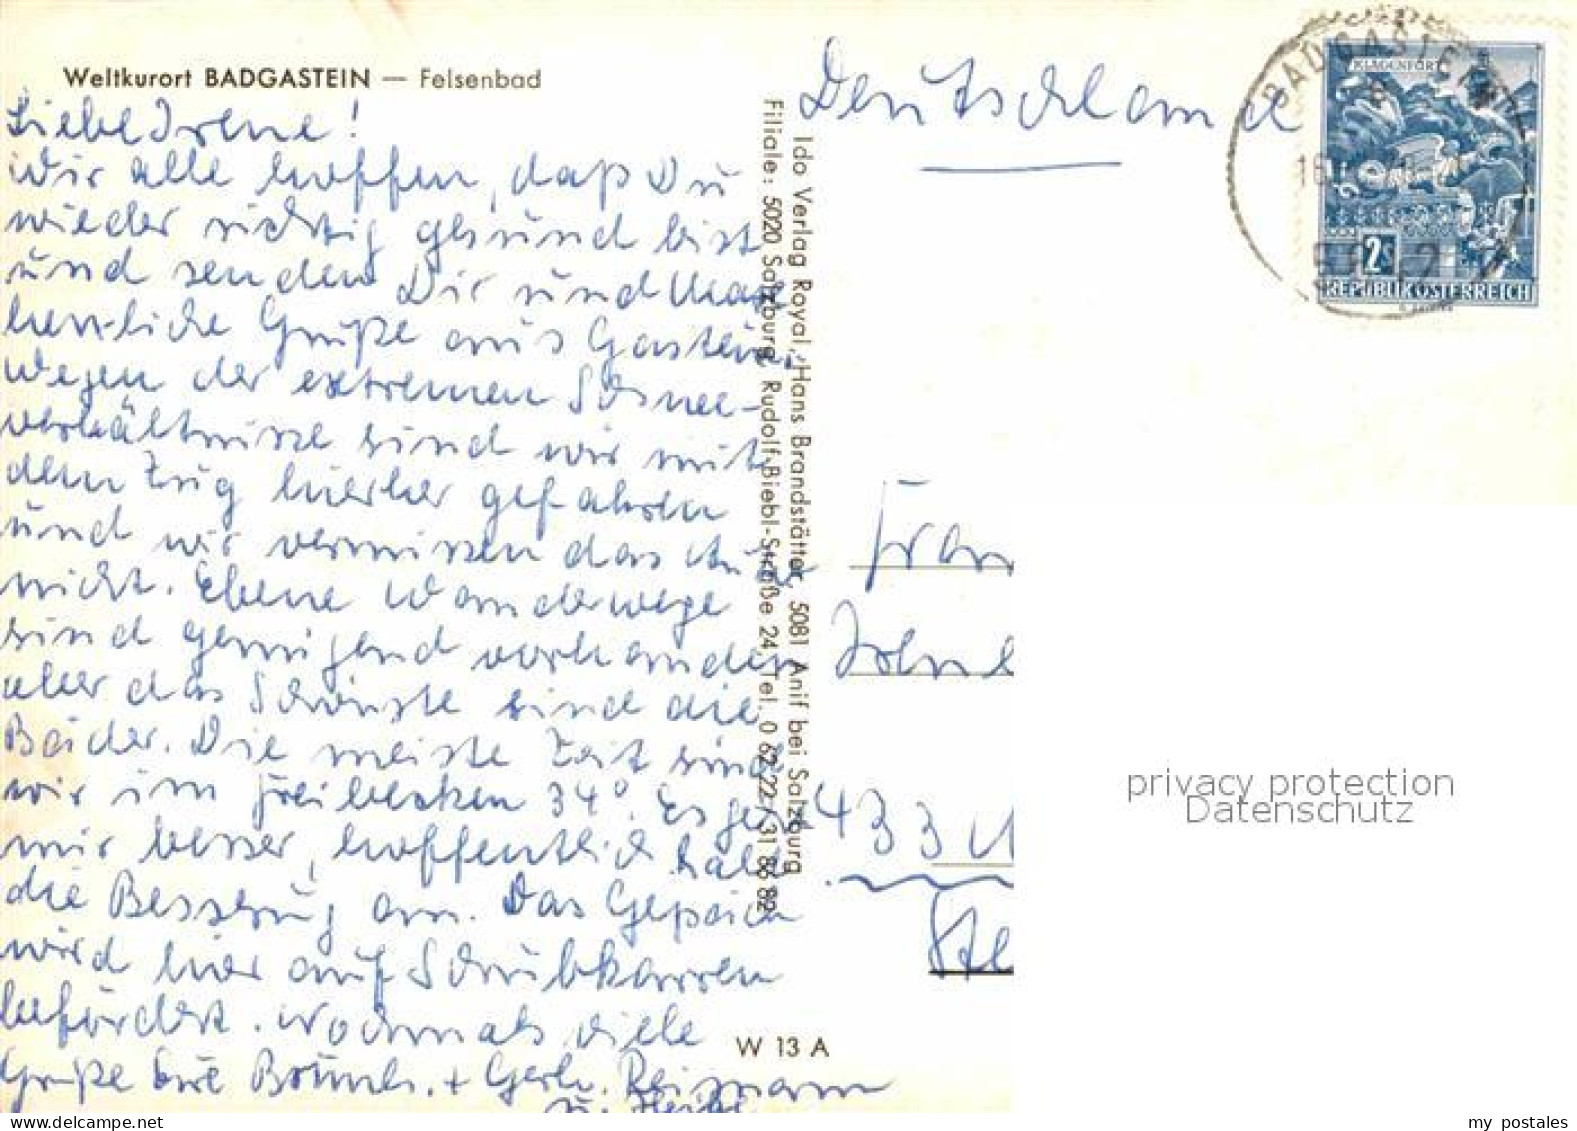 Weltkurort BADGASTEIN — Felsenbad
Liebe Irene!
Wir alle hoffen, daß Du
wieder richtig gesund bist
und senden Dir und
herzliche Grüße aus Gastein.
Wegen der extremen Schnee-
verhältnisse sind wir mit
dem Zug hierher gefahren
und wir vermissen das Auto
nicht. Ebene Wanderwege
sind genügend vorhanden
aber das Schönste sind die
Bäder. Die meiste Zeit sind
wir im Freibecken 34°. Es geht
mir besser, hoffentlich hält
die Besserung an. Das Gepäck
wird hier auf Schubkarren
befördert. Nochmals viele
Grüße Eure + Gerh.
u. Heidi
Ido Verlag Royal, Hans Brandstätter, 5081 Anif bei Salzburg
Filiale: 5020 Salzburg, Rudolf-Biebl-Straße 24, Tel. 0 62 22 / 31 86 82
W 13 A
Deutschland
BADGASTEIN
KLAGENFURT
2S
REPUBLIK ÖSTERREICH
Frau
Irene
433
privacy protection
Datenschutz
my postales